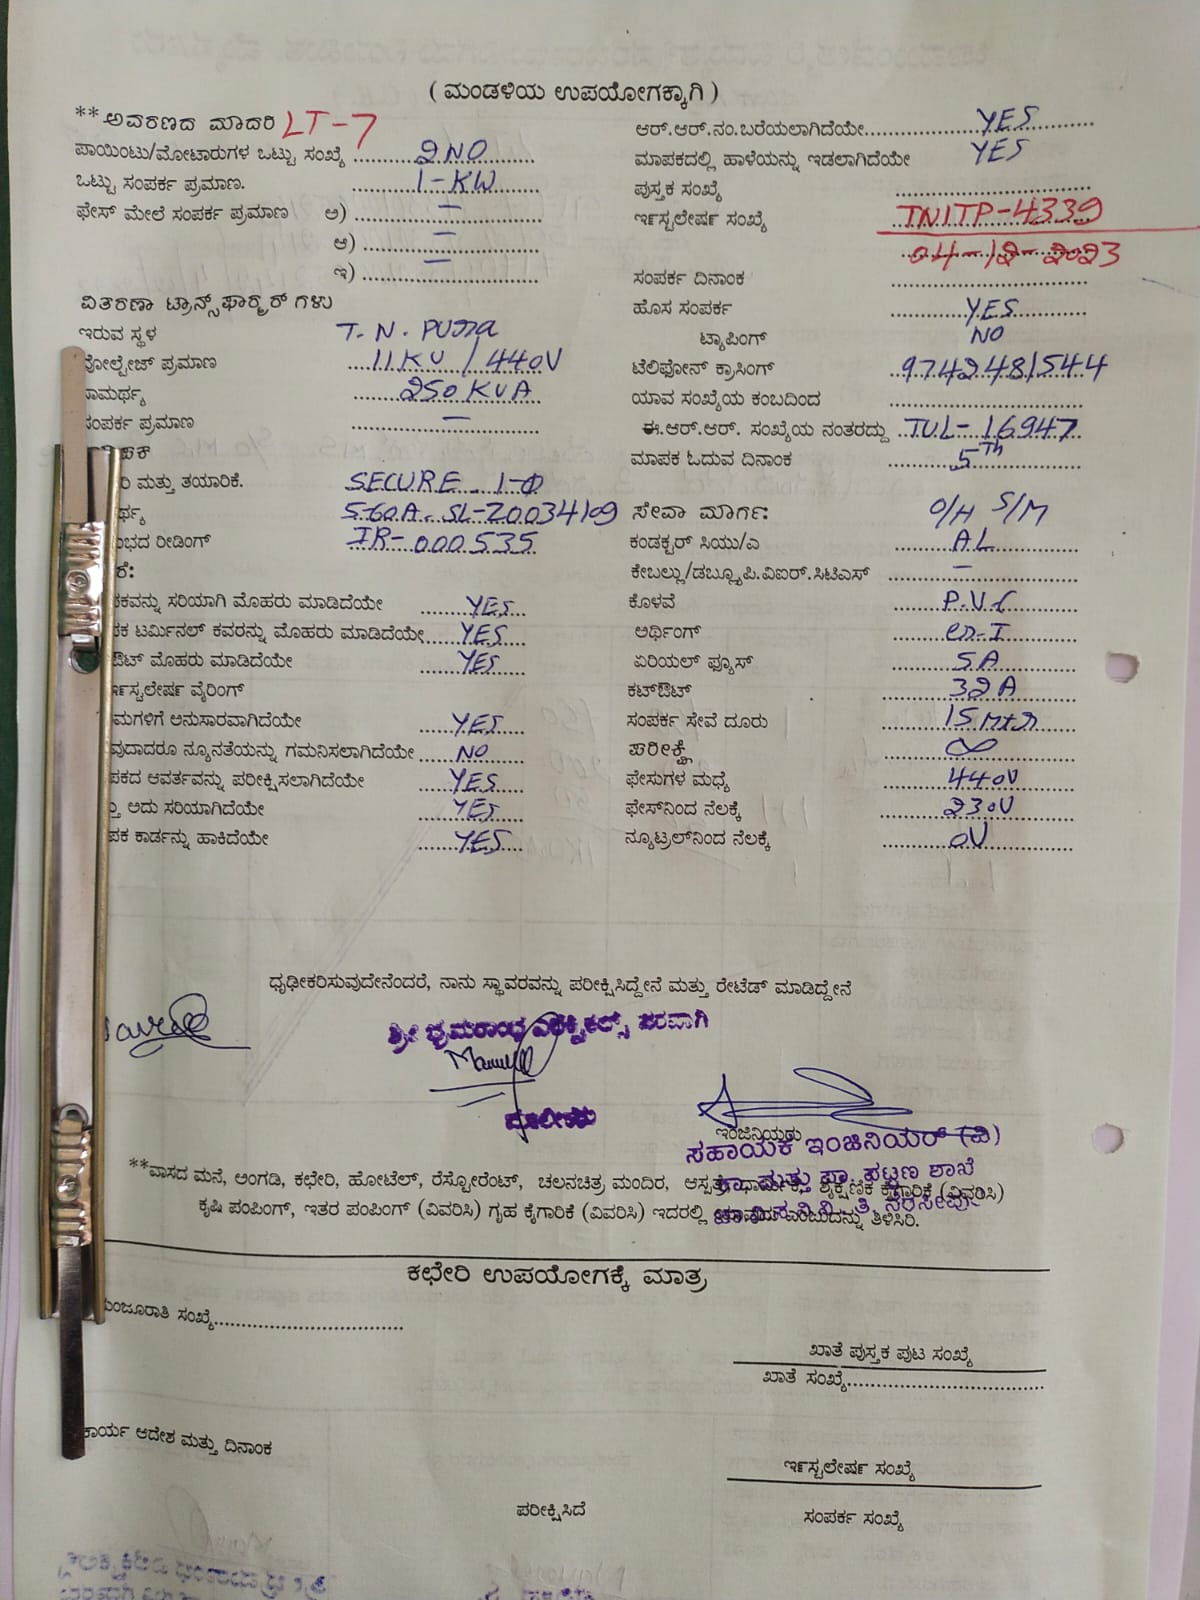 ( ಮಂಡಳಿಯ ಉಪಯೋಗಕ್ಕಾಗಿ )
**ಅವರಣದ ಮಾದರಿ LT-7
ಪಾಯಿಂಟು/ಮೋಟಾರುಗಳ ಒಟ್ಟು ಸಂಖ್ಯೆ 2NO
ಒಟ್ಟು ಸಂಪರ್ಕ ಪ್ರಮಾಣ. 1-KW
ಫೇಸ್ ಮೇಲೆ ಸಂಪರ್ಕ ಪ್ರಮಾಣ ಅ) —
ಆ) —
ಇ) —
ವಿತರಣಾ ಟ್ರಾನ್ಸ್‌ಫಾರ್ಮರ್ ಗಳು
ಇರುವ ಸ್ಥಳ T. N. PURA
ವೋಲ್ಟೇಜ್ ಪ್ರಮಾಣ 11KV / 440V
ಸಾಮರ್ಥ್ಯ 250KVA
ಸಂಪರ್ಕ ಪ್ರಮಾಣ —
ರಿ ಮತ್ತು ತಯಾರಿಕೆ. SECURE. 1-Φ
ರ್ಥ್ಯ 5-60A. SL-Z0034109
ಂಭದ ರೀಡಿಂಗ್ IR-000535
ರೆ:
ಕವನ್ನು ಸರಿಯಾಗಿ ಮೊಹರು ಮಾಡಿದೆಯೇ YES
ಕ ಟರ್ಮಿನಲ್ ಕವರನ್ನು ಮೊಹರು ಮಾಡಿದೆಯೇ YES
ಔಟ್ ಮೊಹರು ಮಾಡಿದೆಯೇ YES
ಇನ್‌ಸ್ಟಲೇಷನ್ ವೈರಿಂಗ್
ಮಗಳಿಗೆ ಅನುಸಾರವಾಗಿದೆಯೇ YES
ವುದಾದರೂ ನ್ಯೂನತೆಯನ್ನು ಗಮನಿಸಲಾಗಿದೆಯೇ NO
ಪಕದ ಆವರ್ತವನ್ನು ಪರೀಕ್ಷಿಸಲಾಗಿದೆಯೇ YES
ತ್ತು ಅದು ಸರಿಯಾಗಿದೆಯೇ YES
ಪಕ ಕಾರ್ಡನ್ನು ಹಾಕಿದೆಯೇ YES
ಆರ್.ಆರ್.ನಂ.ಬರೆಯಲಾಗಿದೆಯೇ YES
ಮಾಪಕದಲ್ಲಿ ಹಾಳೆಯನ್ನು ಇಡಲಾಗಿದೆಯೇ YES
ಪುಸ್ತಕ ಸಂಖ್ಯೆ
ಇನ್‌ಸ್ಟಲೇಷನ್ ಸಂಖ್ಯೆ TNITP-4339
04-12-2023
ಸಂಪರ್ಕ ದಿನಾಂಕ
ಹೊಸ ಸಂಪರ್ಕ YES
ಟ್ಯಾಪಿಂಗ್ NO
ಟೆಲಿಫೋನ್ ಕ್ರಾಸಿಂಗ್ 9742481544
ಯಾವ ಸಂಖ್ಯೆಯ ಕಂಬದಿಂದ
ಈ.ಆರ್.ಆರ್. ಸಂಖ್ಯೆಯ ನಂತರದ್ದು TUL-16947
ಮಾಪಕ ಓದುವ ದಿನಾಂಕ 5Th
ಸೇವಾ ಮಾರ್ಗ: O/H S/M
ಕಂಡಕ್ಟರ್ ಸಿಯು/ಎ AL
ಕೇಬಲ್ಲು/ಡಬ್ಲ್ಯೂಪಿ.ವಿಐಆರ್.ಸಿಟಿಎಸ್ —
ಕೊಳವೆ P.V.C
ಅರ್ಥಿಂಗ್
ಏರಿಯಲ್ ಫ್ಯೂಸ್ 5A
ಕಟ್‌ಔಟ್ 32A
ಸಂಪರ್ಕ ಸೇವೆ ದೂರು 15 Mtr
ಪರೀಕ್ಷೆ ∞
ಫೇಸುಗಳ ಮಧ್ಯೆ 440V
ಫೇಸ್‌ನಿಂದ ನೆಲಕ್ಕೆ 230V
ನ್ಯೂಟ್ರಲ್‌ನಿಂದ ನೆಲಕ್ಕೆ 0V
ಧೃಢೀಕರಿಸುವುದೇನೆಂದರೆ, ನಾನು ಸ್ಥಾವರವನ್ನು ಪರೀಕ್ಷಿಸಿದ್ದೇನೆ ಮತ್ತು ರೇಟೆಡ್ ಮಾಡಿದ್ದೇನೆ
ಶ್ರೀ ಭ್ರಮರಾಂಭ ಎಲೆಕ್ಟ್ರಿಕಲ್ಸ್ ಪರವಾಗಿ
ಮಾಲೀಕರು
ಇಂಜಿನಿಯರು
ಸಹಾಯಕ ಇಂಜಿನಿಯರ್ (ವಿ)
ಮತ್ತು ಪಾ. ಪಟ್ಟಣ ಶಾಖೆ
**ವಾಸದ ಮನೆ, ಅಂಗಡಿ, ಕಛೇರಿ, ಹೋಟೆಲ್, ರೆಸ್ಟೋರೆಂಟ್, ಚಲನಚಿತ್ರ ಮಂದಿರ, ಆಸ್ಪತ್ರೆ, ಧಾರ್ಮಿಕ, ಶೈಕ್ಷಣಿಕ ಕೈಗಾರಿಕೆ (ವಿವರಿಸಿ)
ಕೃಷಿ ಪಂಪಿಂಗ್, ಇತರ ಪಂಪಿಂಗ್ (ವಿವರಿಸಿ) ಗೃಹ ಕೈಗಾರಿಕೆ (ವಿವರಿಸಿ) ಇದರಲ್ಲಿ ಯಾವುದು ಎಂಬುದನ್ನು ತಿಳಿಸಿರಿ.
ಕಛೇರಿ ಉಪಯೋಗಕ್ಕೆ ಮಾತ್ರ
ಮಂಜೂರಾತಿ ಸಂಖ್ಯೆ
ಖಾತೆ ಪುಸ್ತಕ ಪುಟ ಸಂಖ್ಯೆ
ಖಾತೆ ಸಂಖ್ಯೆ
ಕಾರ್ಯ ಆದೇಶ ಮತ್ತು ದಿನಾಂಕ
ಇನ್‌ಸ್ಟಲೇಷನ್ ಸಂಖ್ಯೆ
ಪರೀಕ್ಷಿಸಿದೆ
ಸಂಪರ್ಕ ಸಂಖ್ಯೆ